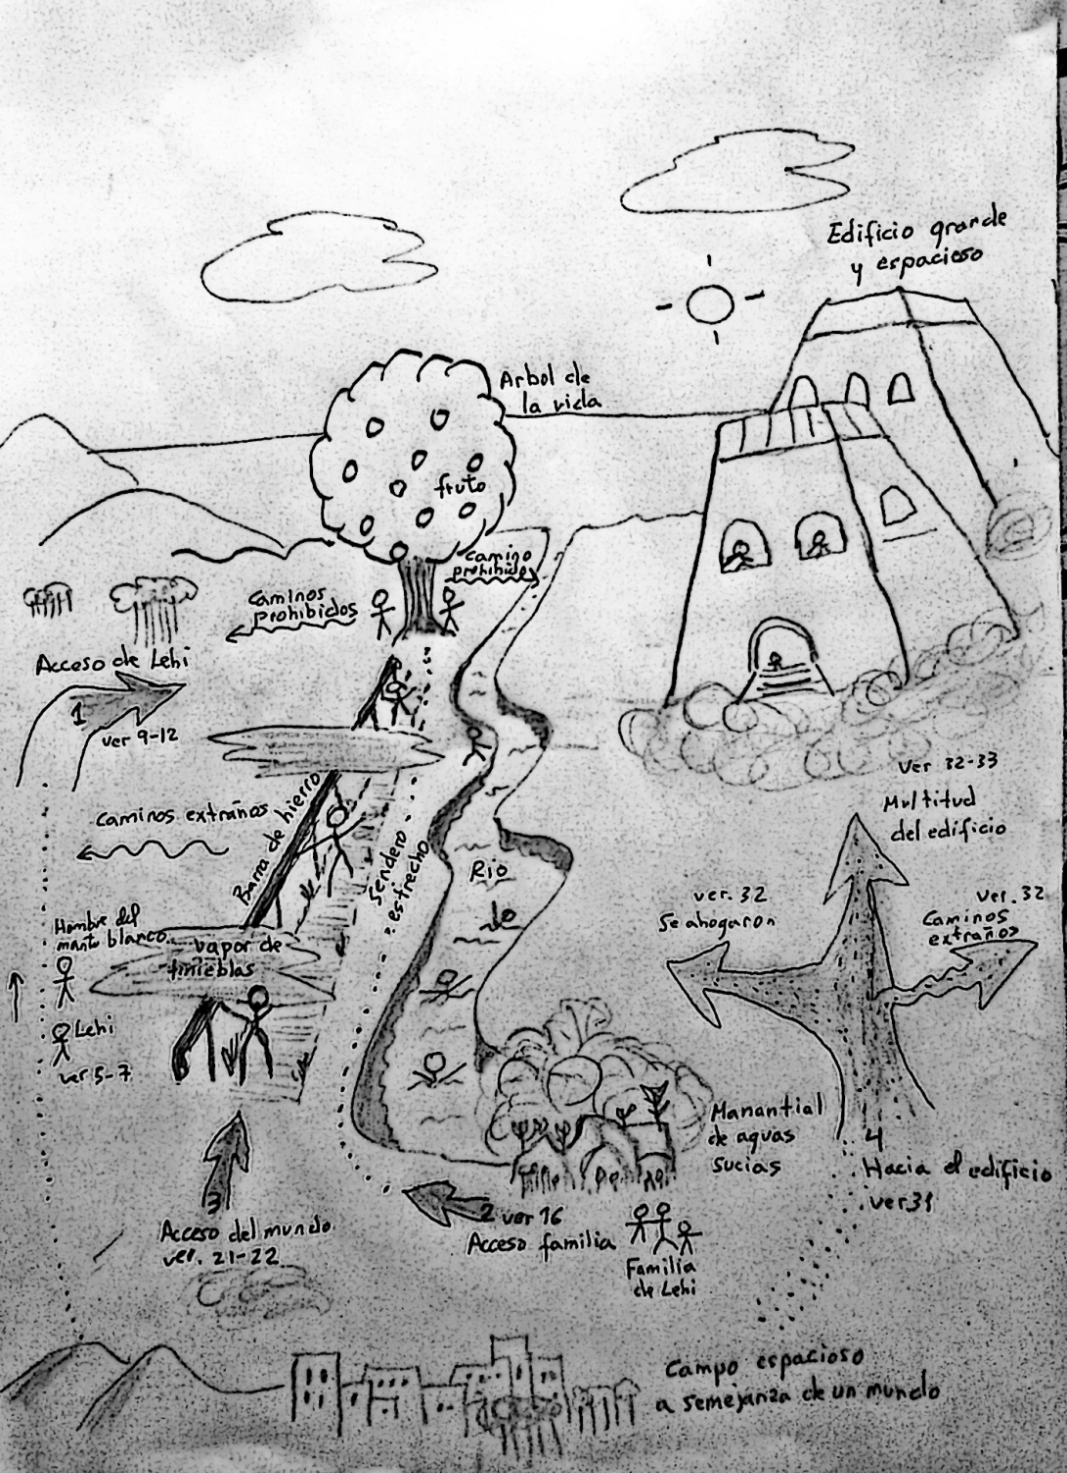 Edificio grande
y espacioso
Arbol de
la vida
fruto
camino
prohibido
Caminos
prohibidos
Acceso de Lehi
1
ver 9-12
Caminos extraños
Barra de hierro
Sendero
estrecho
Rio
Ver 32-33
Multitud
del edificio
ver. 32
Se ahogaron
ver. 32
Caminos
extraños
Hombre del
manto blanco
vapor de
tinieblas
Lehi
ver 5-7
Manantial
de aguas
sucias
4
Hacia el edificio
ver 31
3
Acceso del mundo
ver. 21-22
2 ver 16
Acceso familia
Familia
de Lehi
Campo espacioso
a semejanza de un mundo